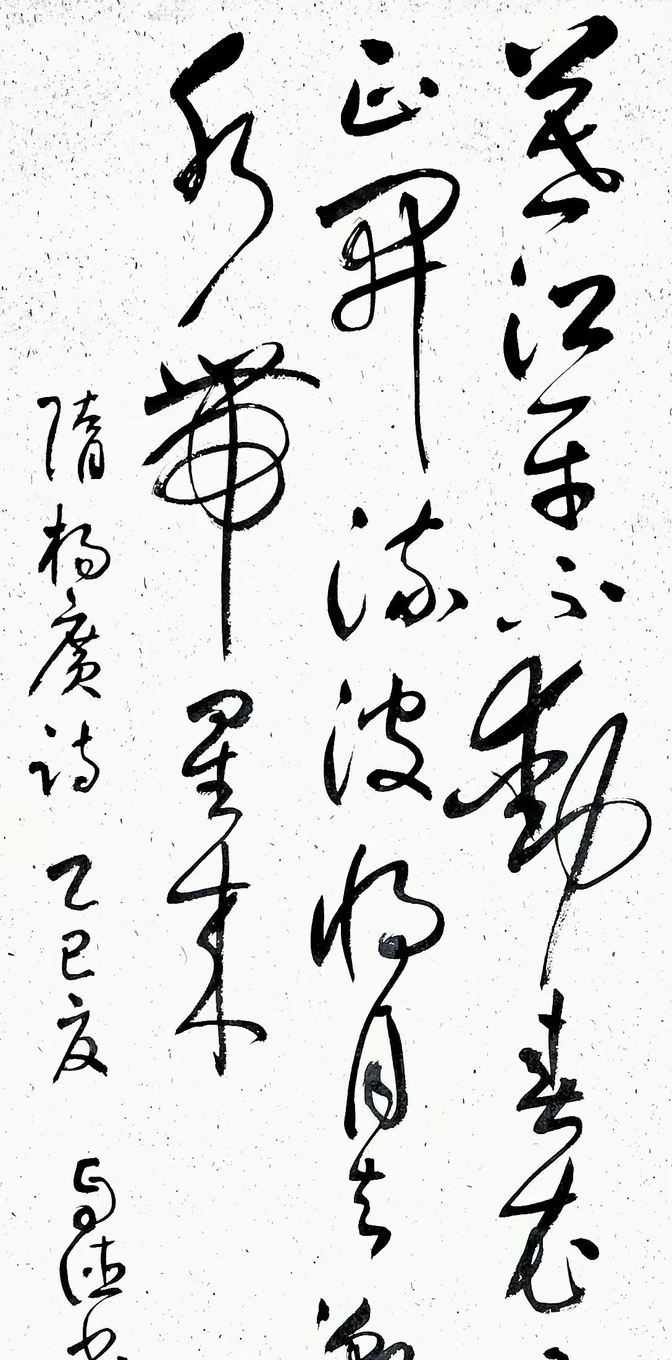 暮江平不動春花
正開流波將月去
水帶星來
隋楊廣詩 乙巳夏